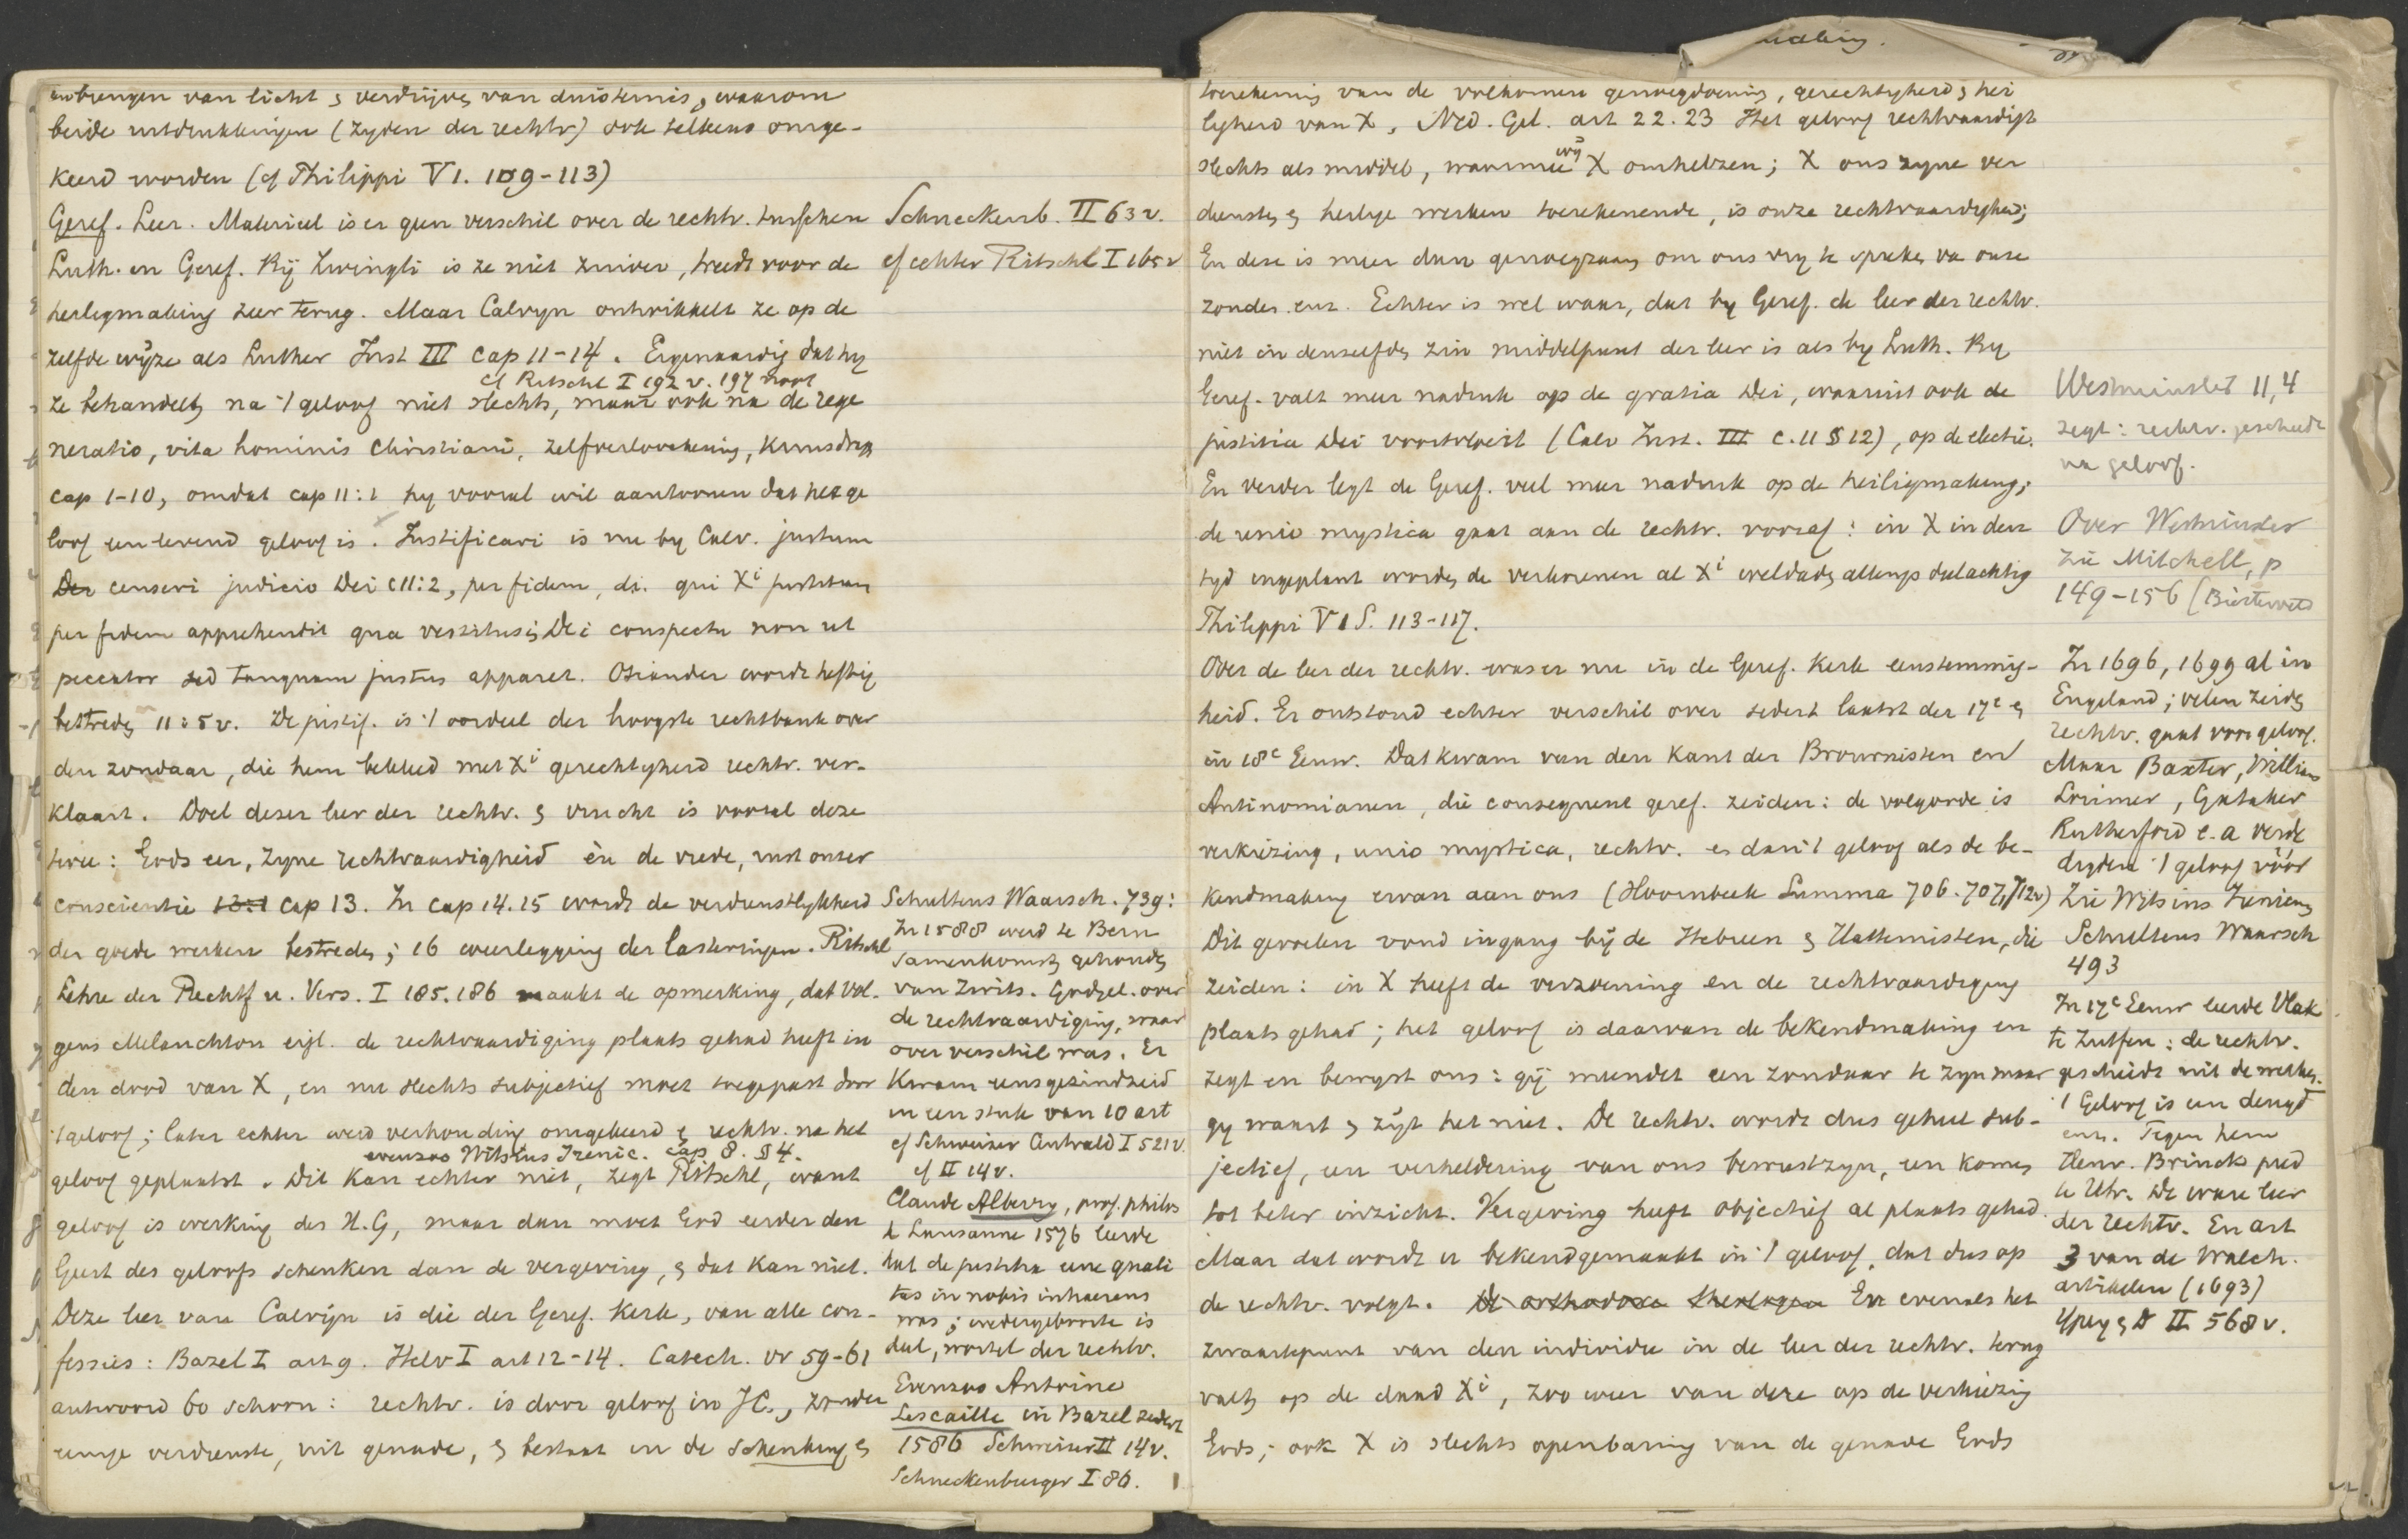 aanbrengen van licht & verdrijven van duisternis, waarom
beide uitdrukkingen (zyden der rechtv) ook telkens omge-
keerd worden (cf Philippi V 1. 109-113)
Geref. Leer. Materieel is er geen verschil over de rechtv. tusschen
Luth. en Geref. Bij Zwingli is ze niet zuiver, treedt voor de
heiligmaking zeer terug. Maar Calvyn ontwikkelt ze op de
zelfde wijze als Luther Inst III cap 11-14. Eigenaardig dat hy
cf Ritschl I 192 v. 197 noot
ze behandelt na 't geloof niet slechts, maar ook na de rege
neratio, vita hominis Christiani, zelfverloochening, kruisdrag
cap 1-10, omdat cap 11:1 hy vooral wil aantoonen dat het ge
loof een levend geloof is. Justificari is nu by Calv. justum
Dei censeri judicio Dei c11:2, per fidem, di. qui Xi justitiam
per fidem apprehendit qua vestitus in Dei conspectu non ut
peccator sed tanquam justus apparet. Osiander wordt heftig
bestreden 11:5 v. De justif. is 't oordeel der hoogste rechtbank over
den zondaar, die hem bekleed met Xi gerechtigheid rechtv. ver-
klaart. Doel dezer leer der rechtv. & vrucht is vooral deze
twee: Gods eer, zyne rechtvaardigheid èn de vrede, rust onzer
conscientie 13:1 cap 13. In cap 14.15 wordt de verdienstelykheid
der goede werken bestreden; 16 weerlegging der lasteringen. Ritschl
Lehre der Rechtf u. Vers. I 185.186 maakt de opmerking, dat vol-
gens Melanchton eigl. de rechtvaardiging plaats gehad heeft in
den dood van X, en nu slechts subjectief moet toegepast door
't geloof; later echter werd verhouding omgekeerd & rechtv. na het
evenzoo Witsius Irenic. cap 8. §4.
geloof geplaatst. Dit kan echter niet, zegt Ritschl, want
geloof is werking des H.G, maar dan moet God eerder den
Geest des geloofs schenken dan de vergeving, & dat kan niet.
Deze leer van Calvijn is die der Geref. Kerk, van alle con-
fessies: Bazel I art 9. Helv I art 12-14. Catech. vr 59-61
antwoord 60 schoon: rechtv. is door geloof in JC., zonder
eenige verdienste, uit genade, & bestaat in de schenking &
Schneckenb. II 63 v.
cf echter Ritschl I 165 v
Schultens Waarsch. 739:
In 1588 werd te Bern
samenkomst gehouden
van Zwits. Godgel. over
de rechtvaardiging, waar
over verschil was. Er
kwam eensgezindheid
in een stuk van 10 art
cf Schweizer Centrald I 521 v.
cf II 14 v.
Claude Albery, prof. philos
te Lausanne 1576 leerde
dat de justitia eene quali
tas in nobis inhaerens
was; wedergeboorte is
deel, wortel der rechtv.
Evenzoo Antoine
Lescaille in Bazel sedert
1586 Schweizer II 14v.
Schneckenburger I 86.
toerekening van de volkomen genoegdoening, gerechtigheid & hei
ligheid van X, Ned. Gel. art 22.23 Het geloof rechtvaardigt
slechts als middel, waarmee wij X omhelzen; X ons zyne ver
diensten & heilige werken toerekenende, is onze rechtvaardigheid;
En deze is meer dan genoegzaam om ons vry te spreken van onze
zonden enz. Echter is wel waar, dat by Geref. de leer der rechtv.
niet in denzelfden zin middelpunt der leer is als by Luth. By
Geref. valt meer nadruk op de gratia Dei, waaruit ook de
justitia Dei voortvloeit (Calv Inst. III c. 11 § 12), op de electie.
En verder legt de Geref. veel meer nadruk op de heiligmaking;
de unio mystica gaat aan de rechtv. vooraf: in X in den
tyd ingeplant worden de verkorenen al Xi weldaden allengs deelachtig
Philippi V 1 S. 113-117.
Over de leer der rechtv. was er nu in de Geref. Kerk eenstemmig-
heid. Er ontstond echter verschil over sedert laatst der 17e &
in 18e Eeuw. Dat kwam van den kant der Brownisten en
Antinomianen, die consequent geref. zeiden: de volgorde is
verkiezing, unio mystica, rechtv. en dan 't geloof als de be-
kendmaking ervan aan ons (Hoornbeek Summa 706.707, 712v)
Dit gevoelen vond ingang bij de Hebreen & Hattemisten, die
zeiden: in X heeft de verzoening en de rechtvaardiging
plaats gehad; het geloof is daarvan de bekendmaking en
zegt en bewyst ons: gij meendet een zondaar te zyn maar
gy waart & zijt het niet. De rechtv. wordt dus geheel sub-
jectief, een verheldering van ons bewustzyn, een komen
tot beter inzicht. Vergeving heeft objectief al plaats gehad.
Maar dat wordt er bekendgemaakt in 't geloof, dat dus op
de rechtv. volgt. De orthodoxe theologen En evenals het
zwaartepunt van den individu in de leer der rechtv. terug
valt op de daad Xi, zoo weer van deze op de verkiezing
Gods; ook X is slechts openbaring van de genade Gods
Westminster 11,4
zegt: rechtv. geschiedt
na geloof.
Over Westminster
zie Mitchell, p
149-156 (Biesterveld
In 1696, 1699 al in
Engeland; velen zeiden
rechtv. gaat voor geloof.
Maar Baxter, Williams
Lorimer, Gataker
Rutherford e.a verde
digden 't geloof vóór
Zie Witsius Irenicum
Schultens Waarsch
493
In 17e Eeuw leerde Vlak
te Zutfen: de rechtv.
geschiedt uit de werken.
't Geloof is een deugd
enz. Tegen hem
Henr. Brinck pred
te Utr. De ware leer
der rechtv. En art
3 van de Walch.
artikelen (1693)
Ypey & D II 568 v.